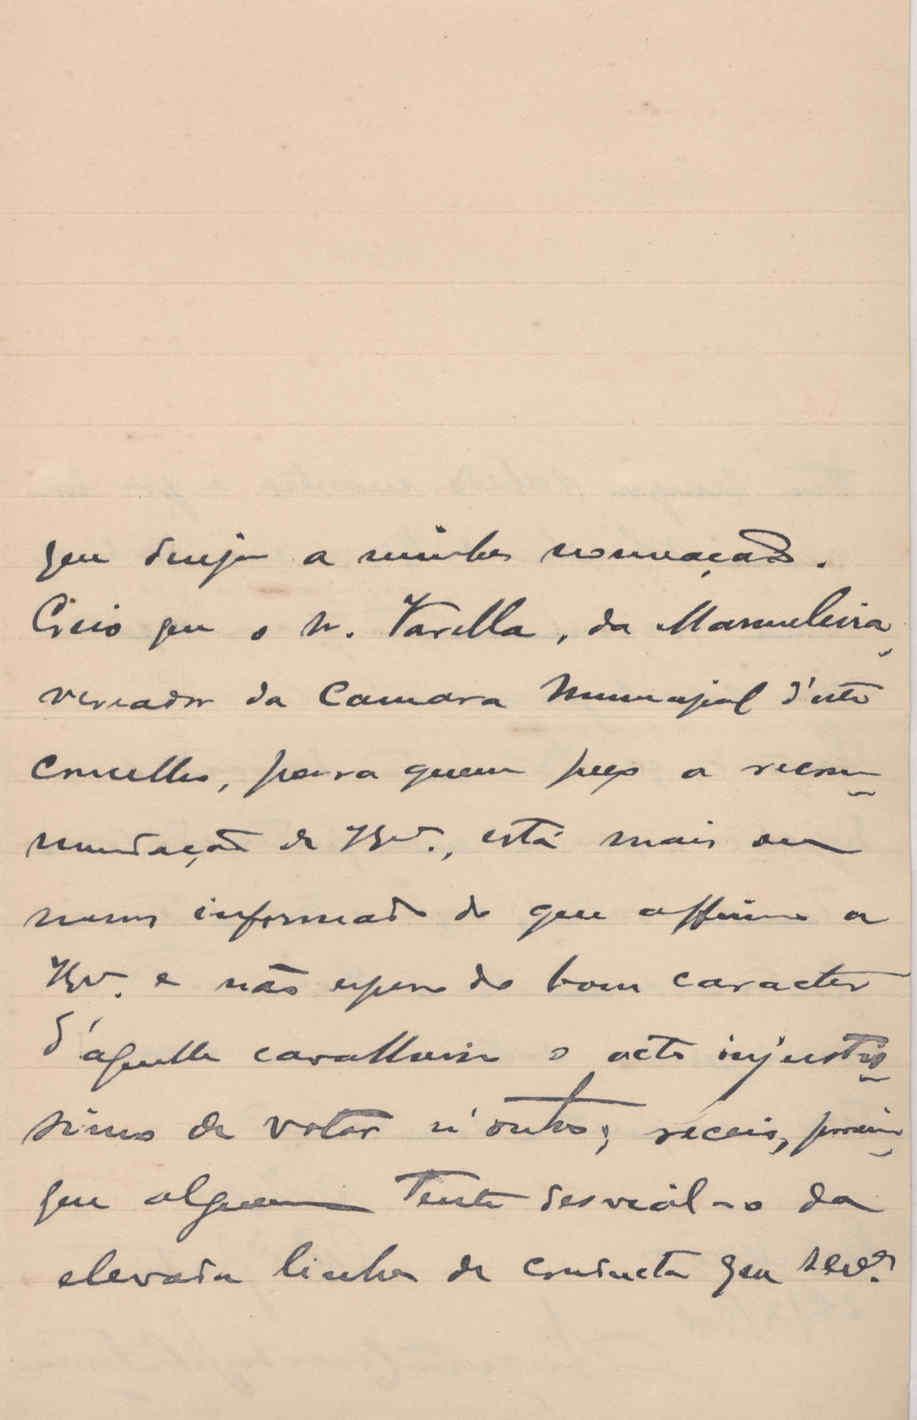 que dirija a minha nomeação.
Creio que o sr. Varella, da Marmeleira,
vereador da Camara Municipal d'este
concelho, para quem peço a recom-
mendação de V. Ex.ª, está mais ou
menos informado do que affirmo a
V. Ex.ª e não espero do bom caracter
d'aquelle cavalheiro o acto injustis-
simo de votar n'outro; receio, porém,
que alguem tente desvial-o da
elevada linha de conducta que